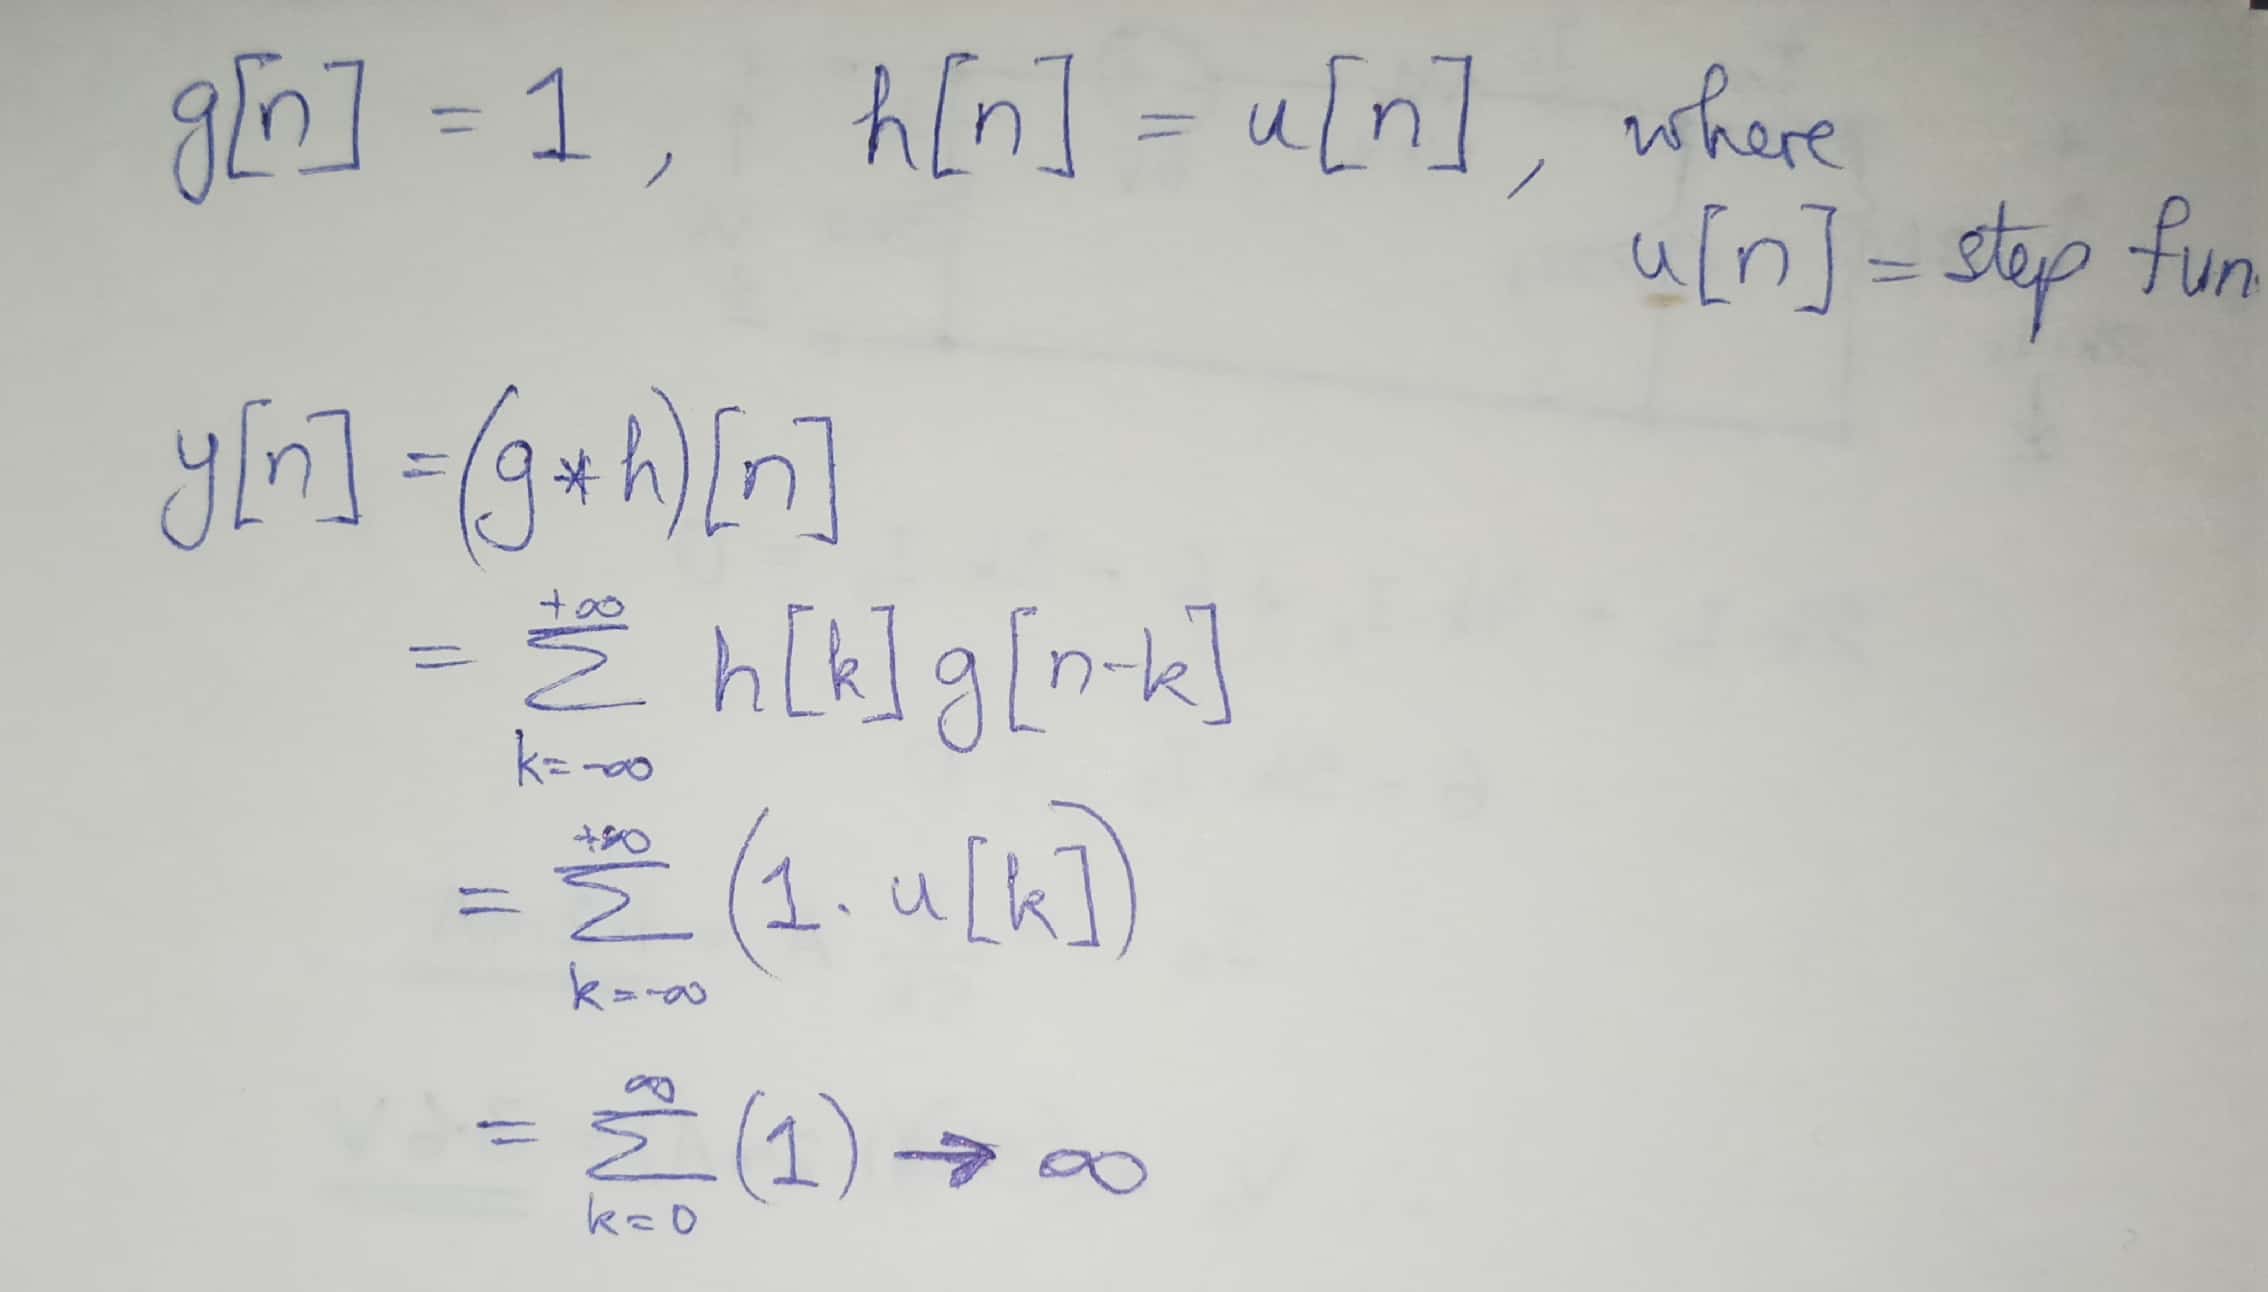 g[n] = 1, h[n] = u[n], where
u[n] = step fun.
y[n] = (g*h)[n]
= +∞ Σ k=-∞ h[k] g[n-k]
= +∞ Σ k=-∞ (1. u[k])
= ∞ Σ k=0 (1) → ∞